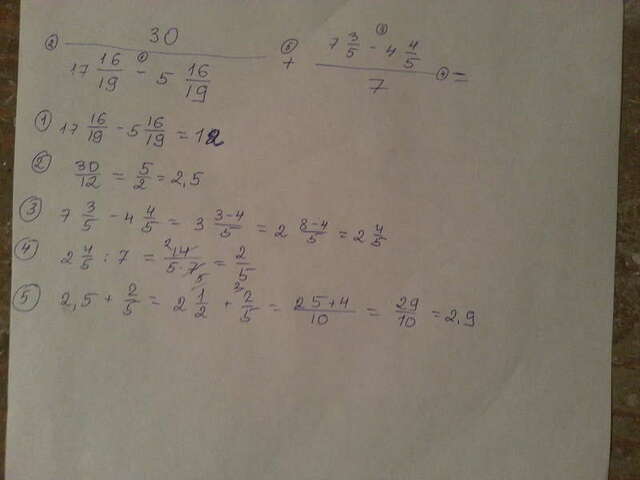 ② 30 / (17 16/19 -① 5 16/19) +⑤ (7 3/5 -③ 4 4/5) / 7 ④ =
① 17 16/19 - 5 16/19 = 12
② 30/12 = 5/2 = 2,5
③ 7 3/5 - 4 4/5 = 3 (3-4)/5 = 2 (8-4)/5 = 2 4/5
④ 2 4/5 : 7 = 14/(5·7) 2 5 = 2/5
⑤ 2,5 + 2/5 = 2 1/2 + 2/5 2 = (25+4)/10 = 29/10 = 2.9